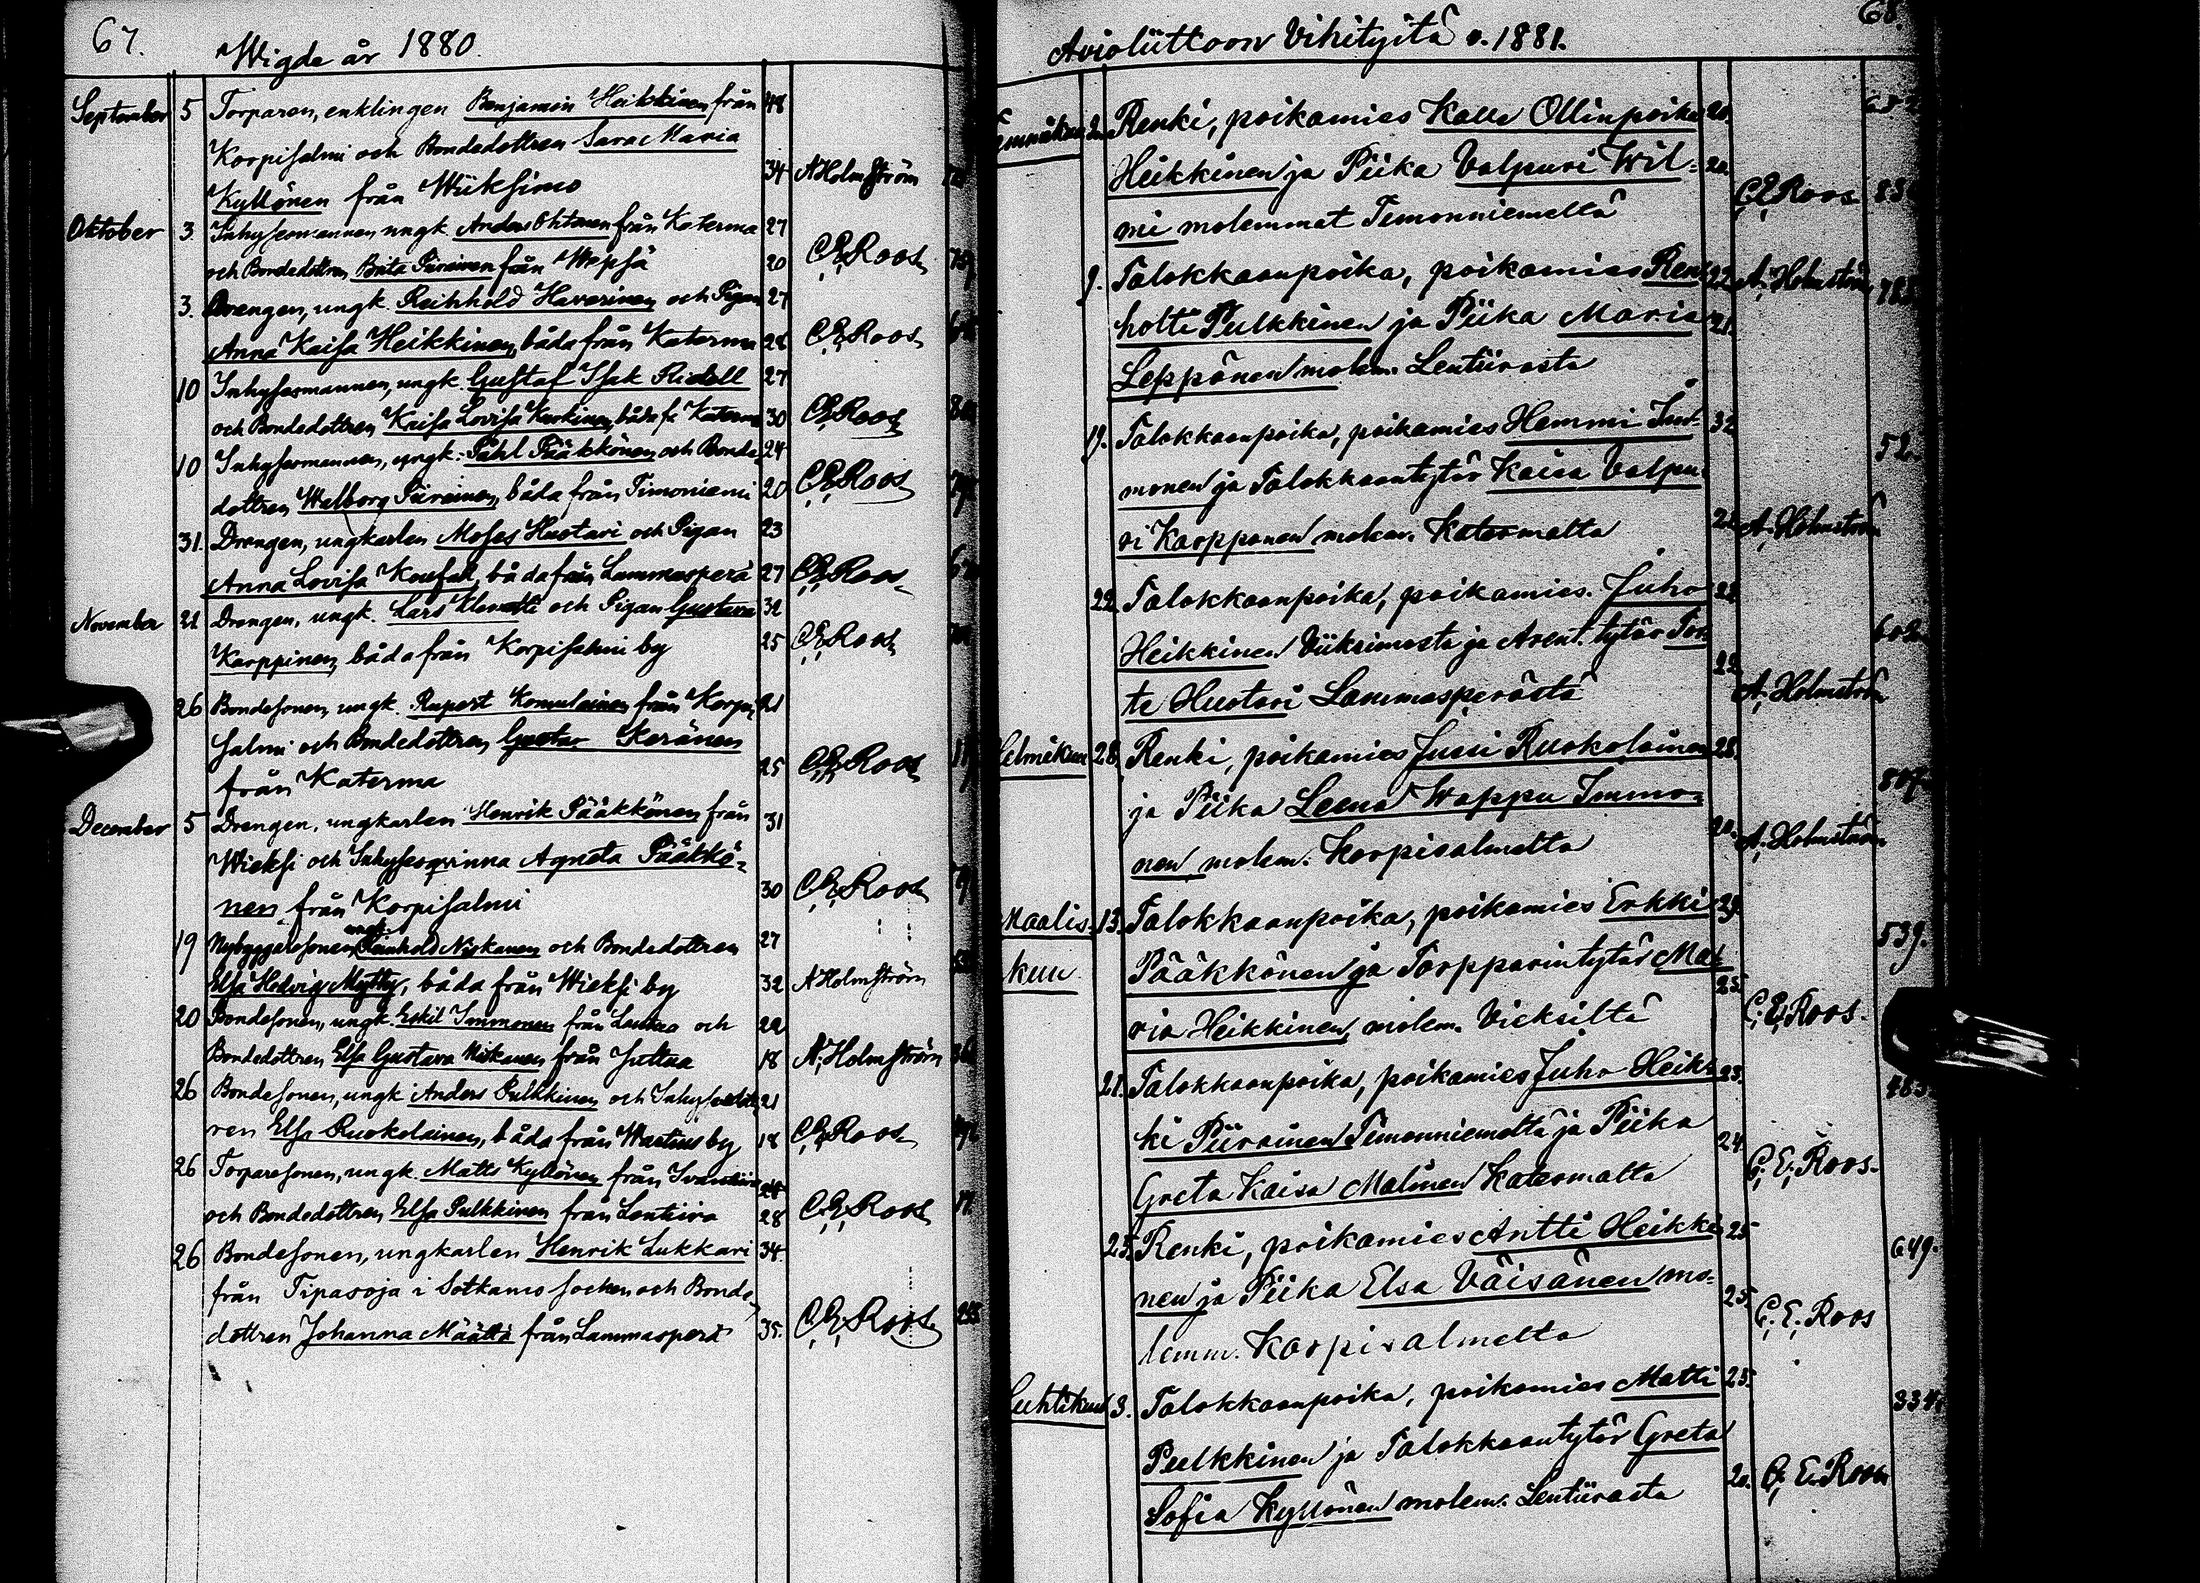 67.
Wigde år 1880.
September 5 Torparen, enklingen Benjamin Heikkinen från 48
Korpisalmi och Bondedottren Sara Maria
Kyllönen från Wiiksimo 34 A Holmström
Oktober 3. Inhysesmannen ungk. Anders Ohtonen från Katerma 27
och Bondedottren Brita Piirainen från Wepsä 20 C. E. Roos
3. Drengen, ungk. Reinhold Haverinen och Pigan 27
Anna Kaisa Heikkinen, båda från Katerma 28 C. E. Roos
10 Inhysesmannen, ungk. Gustaf Isak Ridell 27
och Bondedottren Kaisa Lovisa Kurkinen, båda fr. Katerma 30 C. E. Roos
10 Inhysesmannen, ungk. Påhl Pääkkönen och Bonde- 24
dottren Walborg Piirainen, båda från Timoniemi 20 C. E. Roos
31. Drengen, ungkarlen Moses Huotari och Pigan 23
Anna Lovisa, båda från Lammasperä 27 C. E. Roos
November 21 Drengen, ungk. Lars Klemetti och Pigan Gustava 32
Karppinen, båda från Korpisalmi by 25 C. E. Roos
26 Bondesonen, ungk. Rupert Komulainen från Korpi- 21
salmi och Bondedottren Gustava Keränen
från Katerma 25 C. E. Roos
December 5 Drengen, ungkarlen Henrik Pääkkönen från 31
Wieksi och Inhysesqvinna Agneta Pääkkö-
nen från Korpisalmi 30 C. E. Roos
19 Nybyggaresonen, ungk. Reinhold Niskanen och Bondedottren 27
Elsa Hedvig Mytty, båda från Wieksi by 32 A Holmström
20 Bondesonen, ungk. Eskil Immonen från Laukaa och 22
Bondedottren Elsa Gustava Niskanen från Juttua 18 A. Holmström
26 Bondesonen, ungk. Anders Pulkkinen och Inhysesdott- 21
ren Elsa Ruokolainen, båda från Wartius by 18 C. E. Roos
26 Torparesonen, ungk. Matts Kyllönen från Ivantiira 28
och Bondedottren Elsa Pulkkinen från Lentiira 28 C. E. Roos
26 Bondesonen, ungkarlen Henrik Lukkari 34
från Tipasoja i Sotkamo socken och Bonde-
dottren Johanna Määttä från Lammasperä 35. C. E. Roos
68.
Avioliittoon Vihityitä v. 1881.
Renki, poikamies Kalle Ollinpoika 20.
Heikkinen ja Piika Valpuri Wil- 20.
mi molemmat Timonniemeltä C. E. Roos
9. Talokkaanpoika, poikamies Rein- 22. A. Holmström
holti Pulkkinen ja Piika Maria 21.
Leppänen molem. Lentiirasta
19. Talokkaanpoika, poikamies Hemmi Im- 32. 52
monen ja Talokkaantytär Kaisa Valpu-
ri Karppanen molem. Katermalta 21. A. Holmström
22. Talokkaanpoika, poikamies Juho 21.
Heikkinen Viiksimosta ja Arent. tytär
te Huotari Lammasperästä 22. A. Holmström
Helmikuu 28. Renki, poikamies Jussi Ruokolainen 28.
ja Piika Leena Wappu Immo-
nen molem. Korpisalmelta 20. A. Holmström
Maalis- 13. Talokkaanpoika, poikamies Erkki 29. 539.
kuu Pääkkönen ja Torpparintytär Ma-
ria Heikkinen, molem. Vieksiltä 25. C. E. Roos.
21. Talokkaanpoika, poikamies Juho Heik- 23.
ki Piirainen Timonniemeltä ja Piika
Greta Kaisa Malinen Katermalta 24. C. E. Roos.
25. Renki, poikamies Antti Heikki- 25 649.
nen ja Piika Elsa Väisänen mo-
lemm. Korpisalmelta 25. C. E. Roos
Huhtikuu 3. Talokkaanpoika, poikamies Matti 25. 334.
Pulkkinen ja Talokkaantytär Greta
Sofia Kyllönen molem. Lentiirasta 20. C. E. Roos